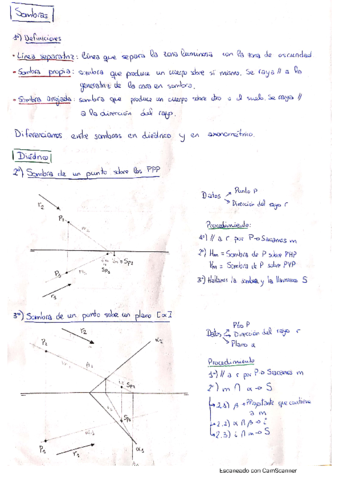 Sombras
1º) Definiciones
• Línea separatriz: línea que separa la zona luminosa con la zona de oscuridad
• Sombra propia: sombra que produce un cuerpo sobre si mismo. Se raya // a la
generatriz de la cara en sombra.
• Sombra arrojada: sombra que produce un cuerpo sobre otro o el suelo. Se raya //
a la dirección del rayo.
Diferenciamos entre sombras en diédrico y en axonométrico.
Diédrico
2º) Sombra de un punto sobre los PPP
Datos
Punto P
Dirección del rayo r
r2
P2
P1
r1
Procedimiento:
1º) // a r por P → Sacamos m
2º) Hm = Sombra de P sobre PHP
Vm = Sombra de P sobre PVP
3º) Hallamos la sombra y la llamamos S
3º) Sombra de un punto sobre un plano [α]
Datos
Pto P
Dirección del rayo r
Plano α
r2
P2
α2
Sp2
Sp1
P1
α1
r1
Procedimiento
1º) // a r por P → Sacamos m
2º) m ∩ α → S
2.1) β → Proyectante que contiene
a m
2.2) α ∩ β → i
2.3) i ∩ m → S
Escaneado con CamScanner